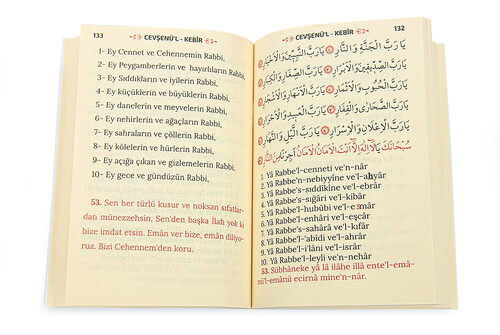 133 CEVŞENÜ'L - KEBÎR
1- Ey Cennet ve Cehennemin Rabbi,
2- Ey Peygamberlerin ve hayırlıların Rabbi,
3- Ey Sıddıkların ve iyilerin Rabbi,
4- Ey küçüklerin ve büyüklerin Rabbi,
5- Ey danelerin ve meyvelerin Rabbi,
6- Ey nehirlerin ve ağaçların Rabbi,
7- Ey sahraların ve çöllerin Rabbi,
8- Ey kölelerin ve hürlerin Rabbi,
9- Ey açığa çıkan ve gizlemelerin Rabbi,
10- Ey gece ve gündüzün Rabbi,
53. Sen her türlü kusur ve noksan sıfatlar-
dan münezzehsin, Sen'den başka İlah yok ki
bize imdat etsin. Emân ver bize, emân diliyo-
ruz. Bizi Cehennem'den koru.
CEVŞENÜ'L - KEBÎR 132
يَا رَبَّ الْجَنَّةِ وَالنَّارِ يَا رَبَّ النَّبِيِّينَ وَالْأَخْيَارِ
يَا رَبَّ الصِّدِّيقِينَ وَالْأَبْرَارِ يَا رَبَّ الصِّغَارِ وَالْكِبَارِ
يَا رَبَّ الْحُبُوبِ وَالْأَثْمَارِ يَا رَبَّ الْأَنْهَارِ وَالْأَشْجَارِ
يَا رَبَّ الصَّحَارَى وَالْقِفَارِ يَا رَبَّ الْعَبِيدِ وَالْأَحْرَارِ
يَا رَبَّ الْإِعْلَانِ وَالْإِسْرَارِ يَا رَبَّ اللَّيْلِ وَالنَّهَارِ
سُبْحَانَكَ يَا لَا إِلَهَ إِلَّا أَنْتَ الْأَمَانَ الْأَمَانَ أَجِرْنَا مِنَ النَّارِ
1. Yâ Rabbe'l-cenneti ve'n-nâr
2. Yâ Rabbe'n-nebiyyîne ve'l-ahyâr
3. Yâ Rabbe's-sıddîkîne ve'l-ebrâr
4. Yâ Rabbe's-sığâri ve'l-kibâr
5. Yâ Rabbe'l-hubûbi ve'l-esmâr
6. Yâ Rabbe'l-enhâri ve'l-eşcâr
7. Yâ Rabbe's-sahârâ ve'l-kıfâr
8. Yâ Rabbe'l-'abîdi ve'l-ahrâr
9. Yâ Rabbe'l-i'lâni ve'l-isrâr
10. Yâ Rabbe'l-leyli ve'n-nehâr
53. Sübhâneke yâ lâ ilâhe illâ ente'l-emâ-
nü'l-emânü ecirnâ mine'n-nâr.